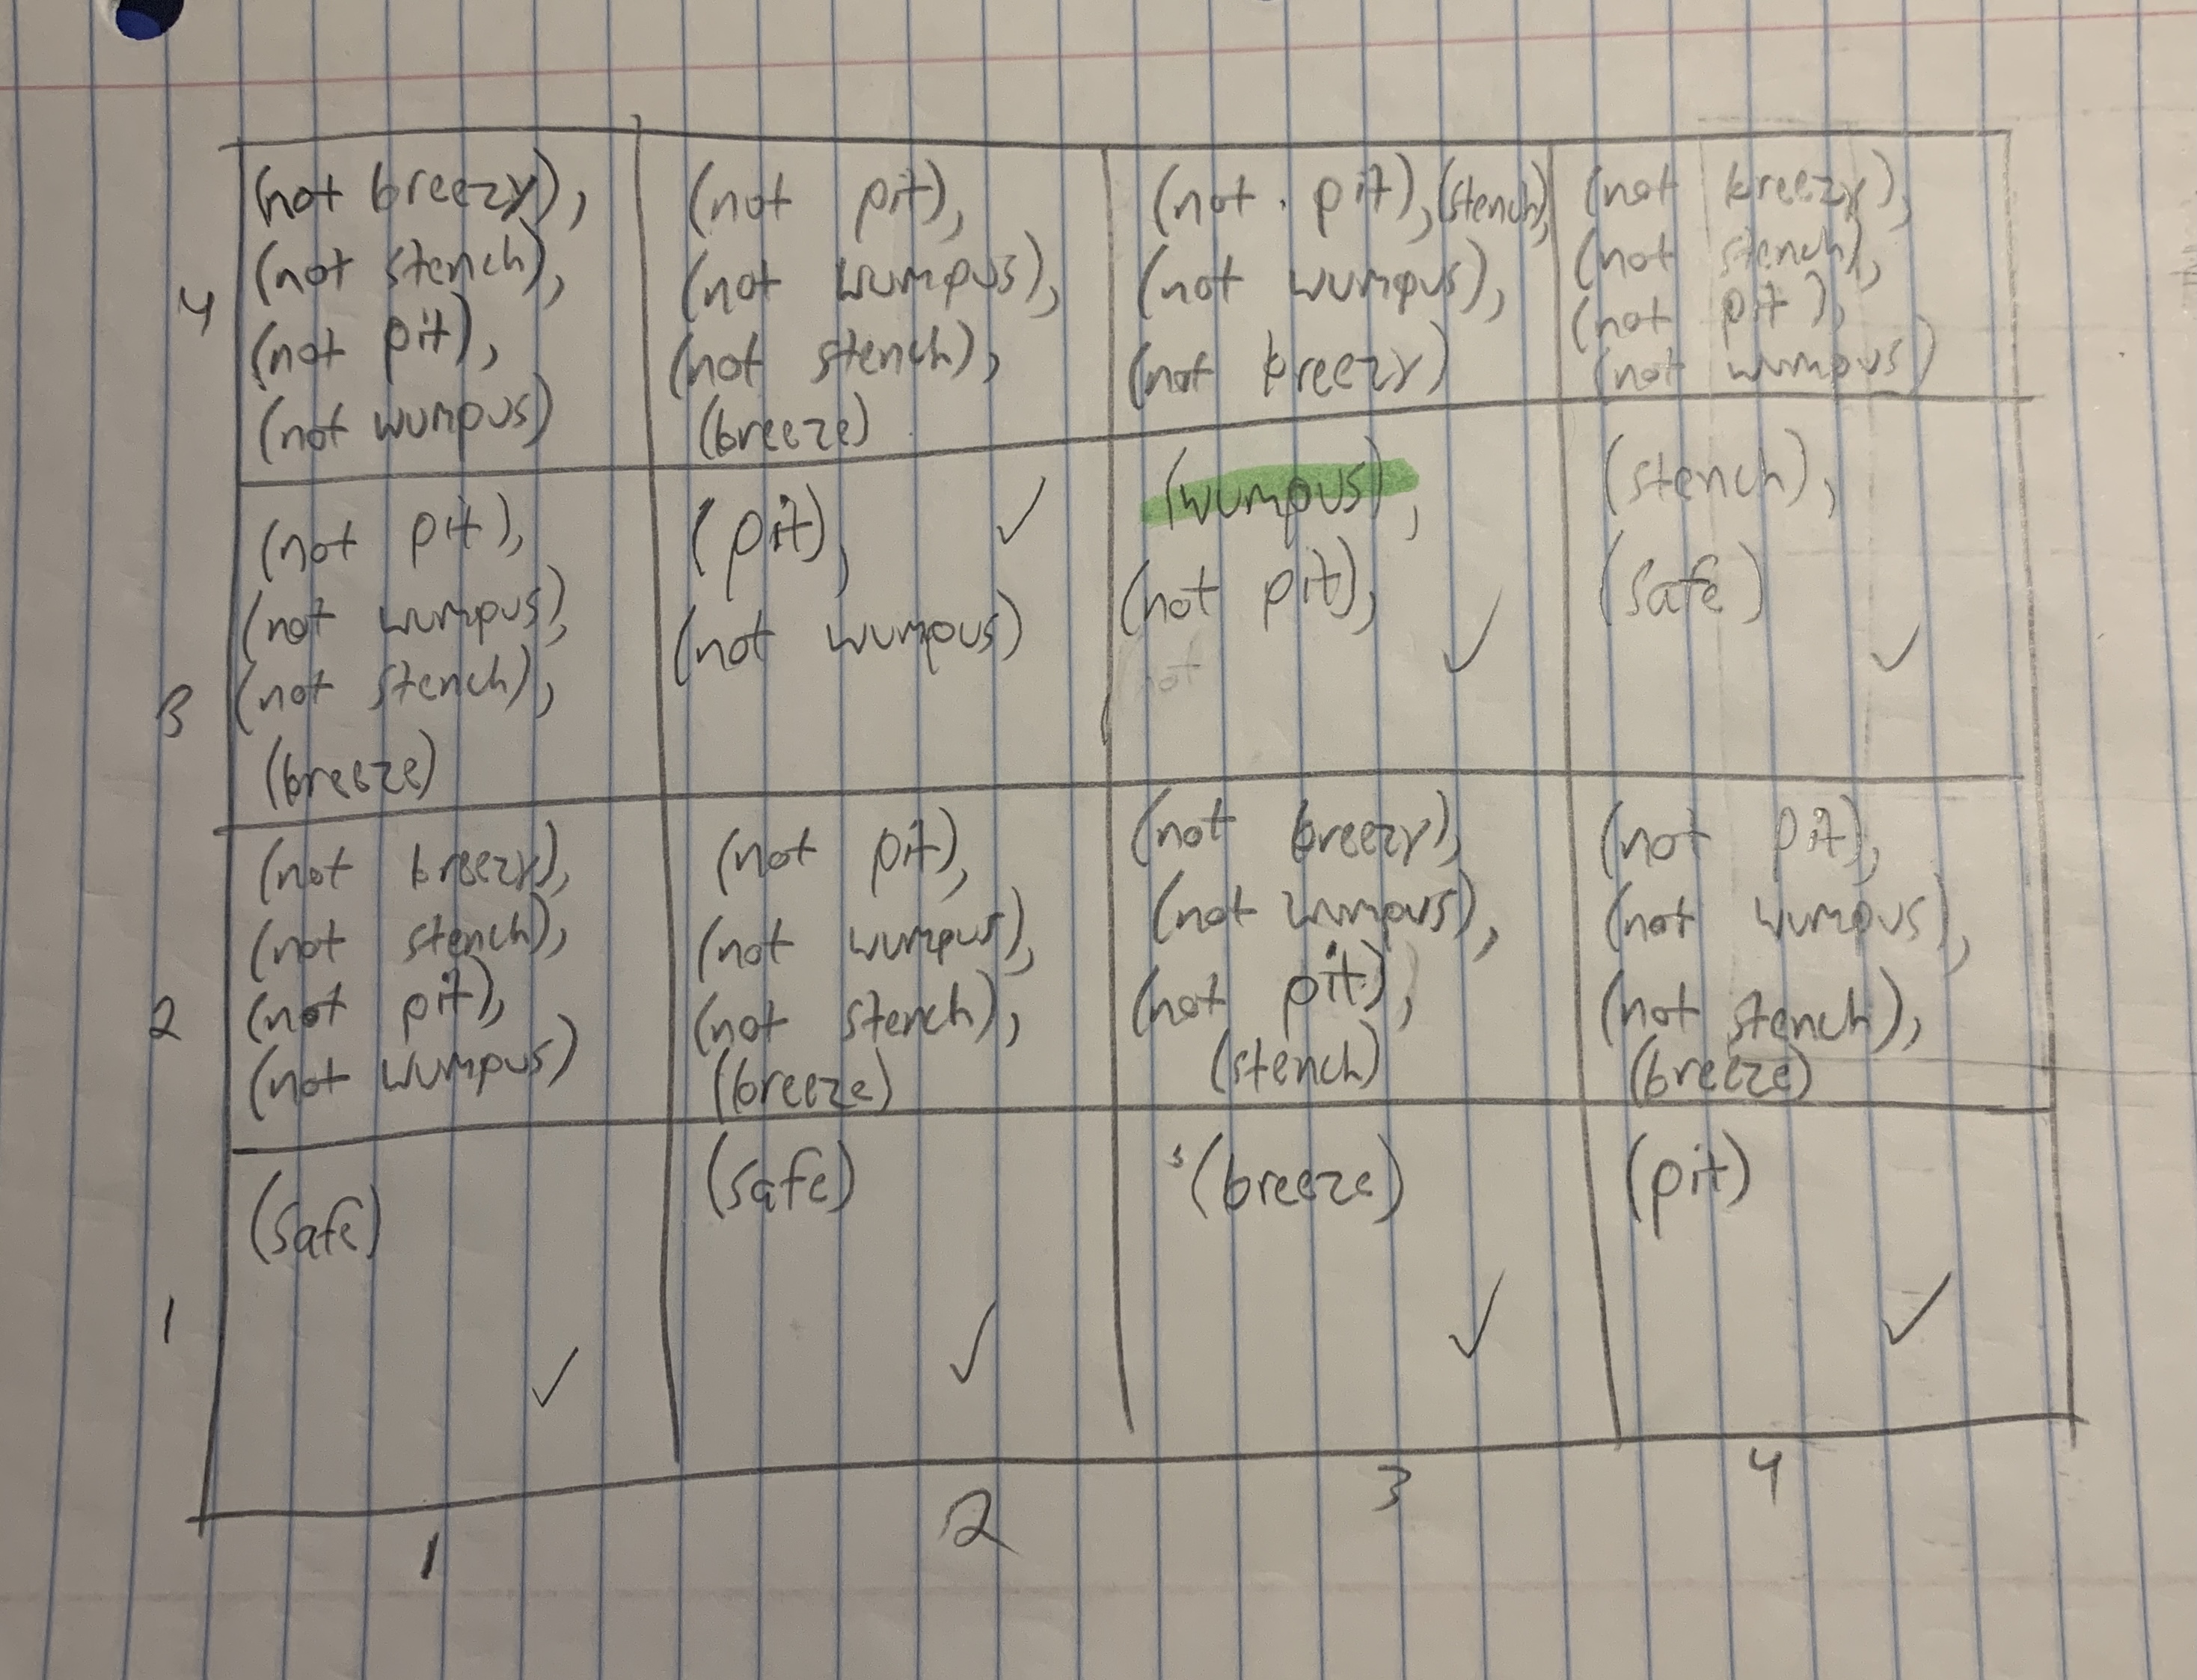 (not breezy),
(not stench),
(not pit),
(not wumpus)
(not pit),
(not wumpus),
(not stench),
(breeze)
(not pit), (stench),
(not wumpus),
(not breezy)
(not breezy),
(not stench),
(not pit),
(not wumpus)
4
(not pit),
(not wumpus),
(not stench),
(breeze)
(pit), ✓
(not wumpus)
(wumpus),
(not pit), ✓
not
(stench),
(safe)
✓
3
(not breezy),
(not stench),
(not pit),
(not wumpus)
(not pit),
(not wumpus),
(not stench),
(breeze)
(not breezy),
(not wumpus),
(not pit),
(stench)
(not pit),
(not wumpus),
(not stench),
(breeze)
2
(safe)
✓
(safe)
✓
s (breeze)
✓
(pit)
✓
1
1 2 3 4